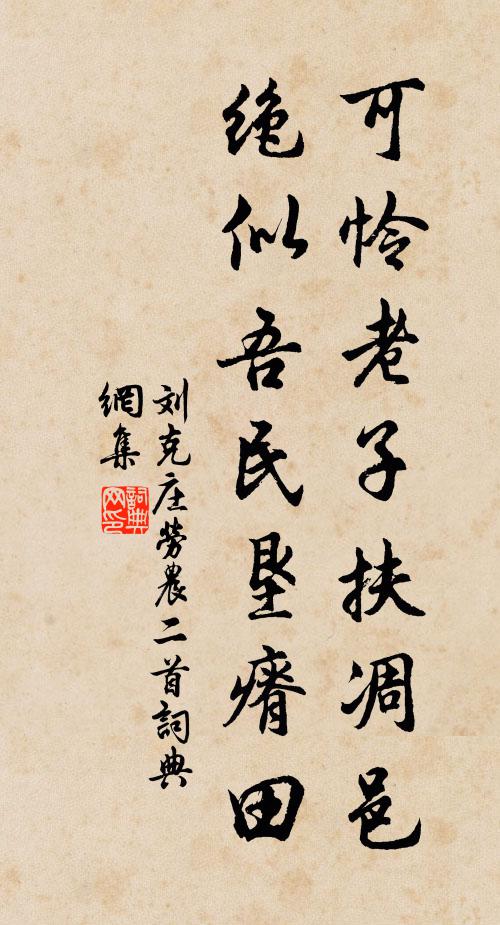 可怜老子扶凋邑
绝似吾民垦瘠田
刘克庄劳農二首詞典
網集
詞典
网印